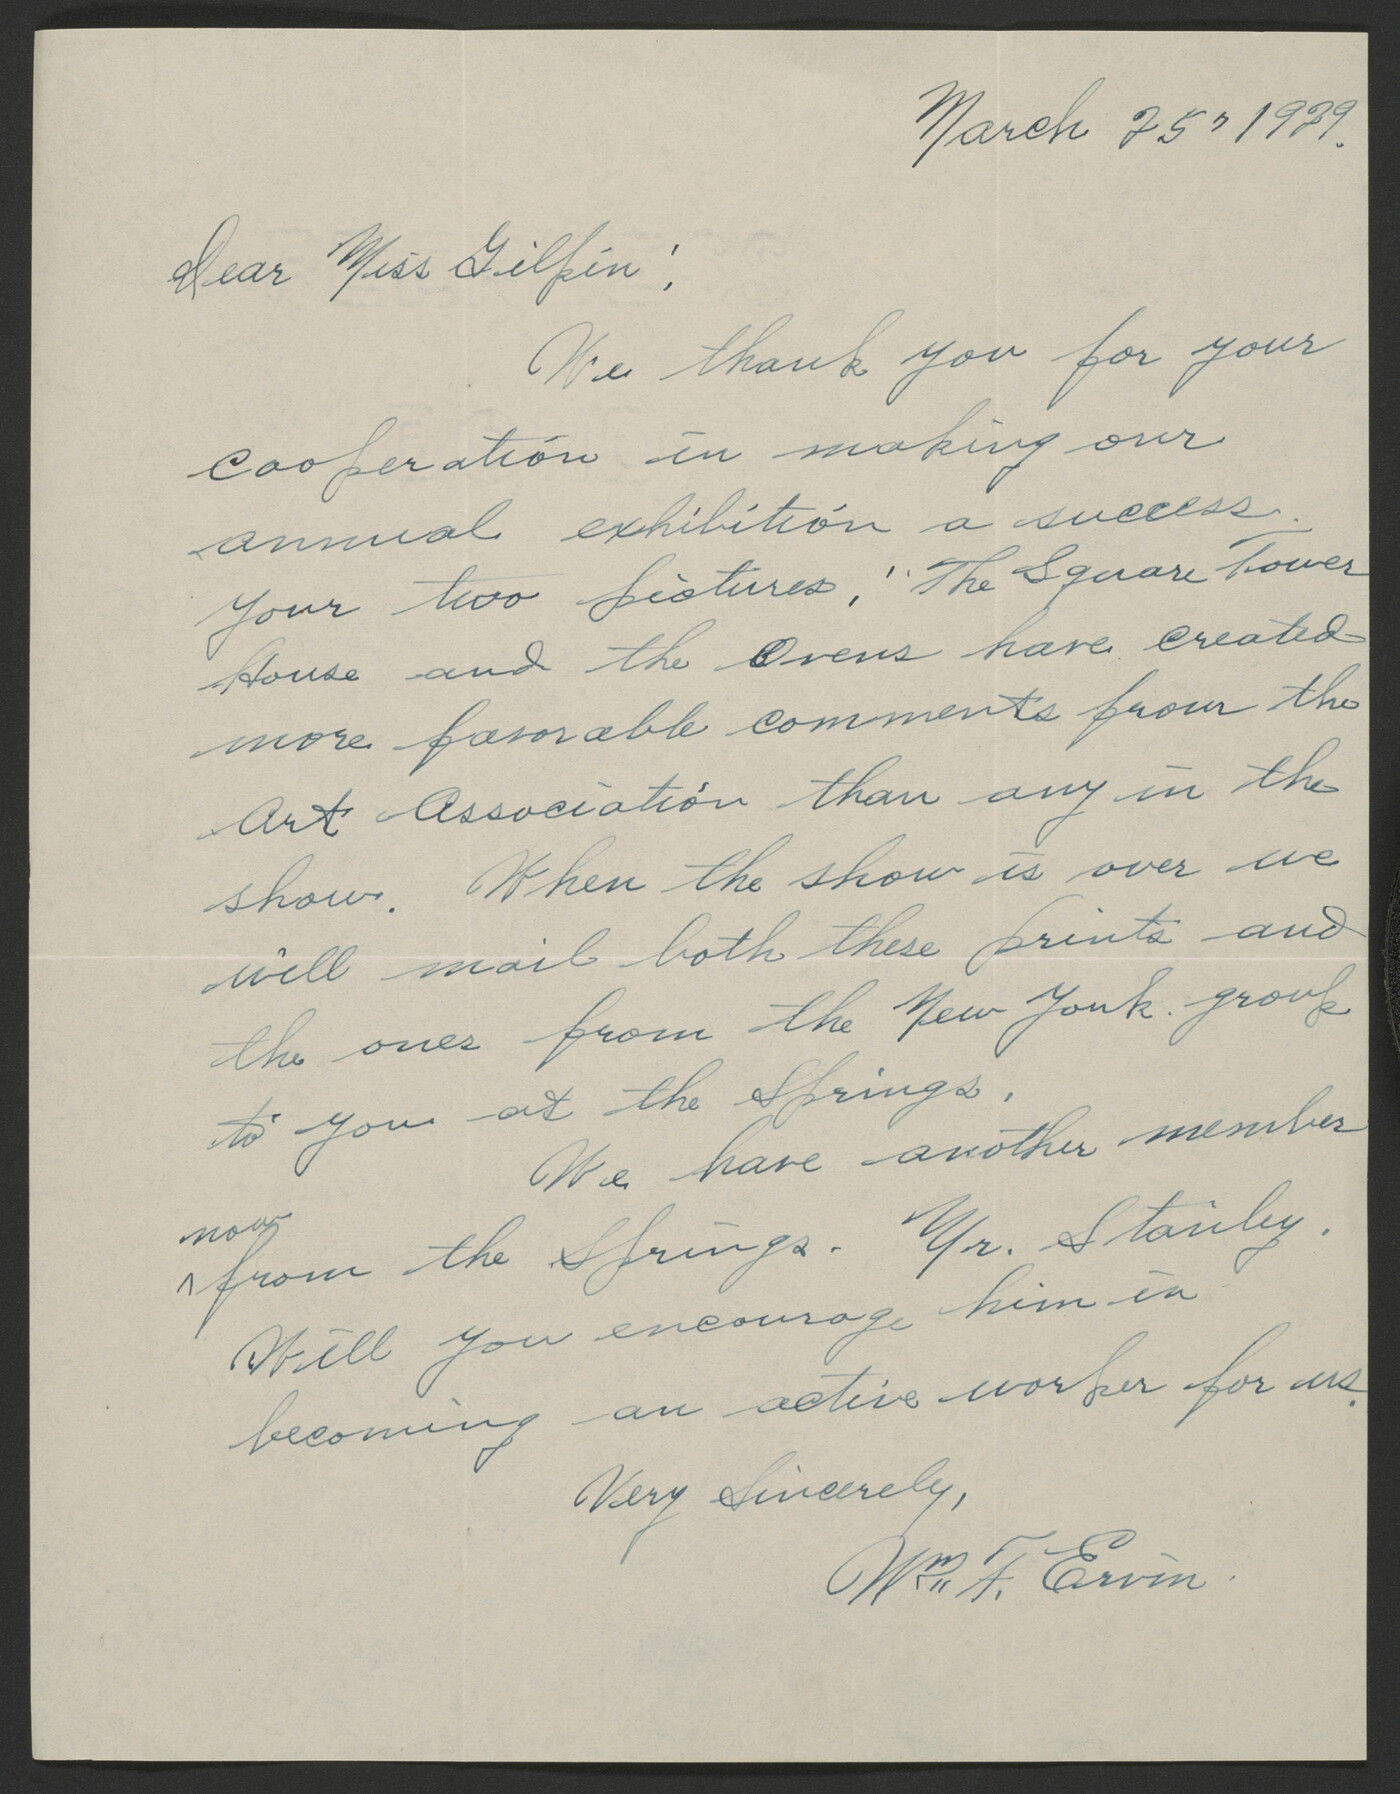 March 25, 1929.
Dear Miss Gilpin;
We thank you for your
cooperation in making our
annual exhibition a success.
Your two pictures, "The Square Tower
House and the Ovens have created
more favorable comments from the
Art Association than any in the
show. When the show is over we
will mail both these prints and
the ones from the New York group
to you at the Springs.
We have another member
now
^from the Springs. Mr. Stanley.
Will you encourage him in
becoming an active worker for us.
Very Sincerely,
Wm. F. Ervin.